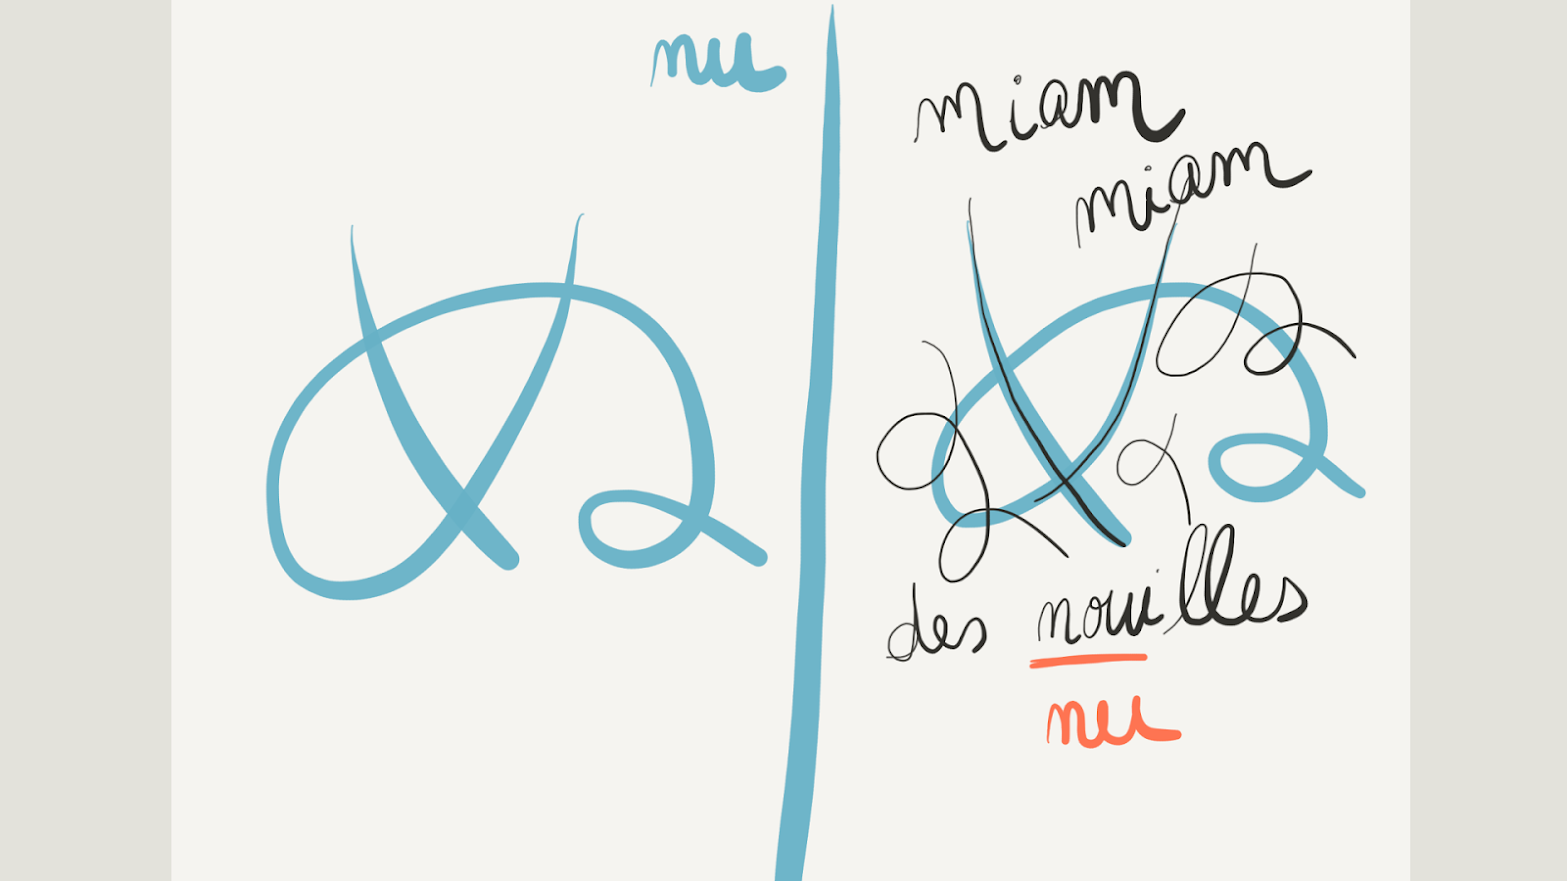 nu
ぬ
miam
miam
ぬ
des nouilles
nu